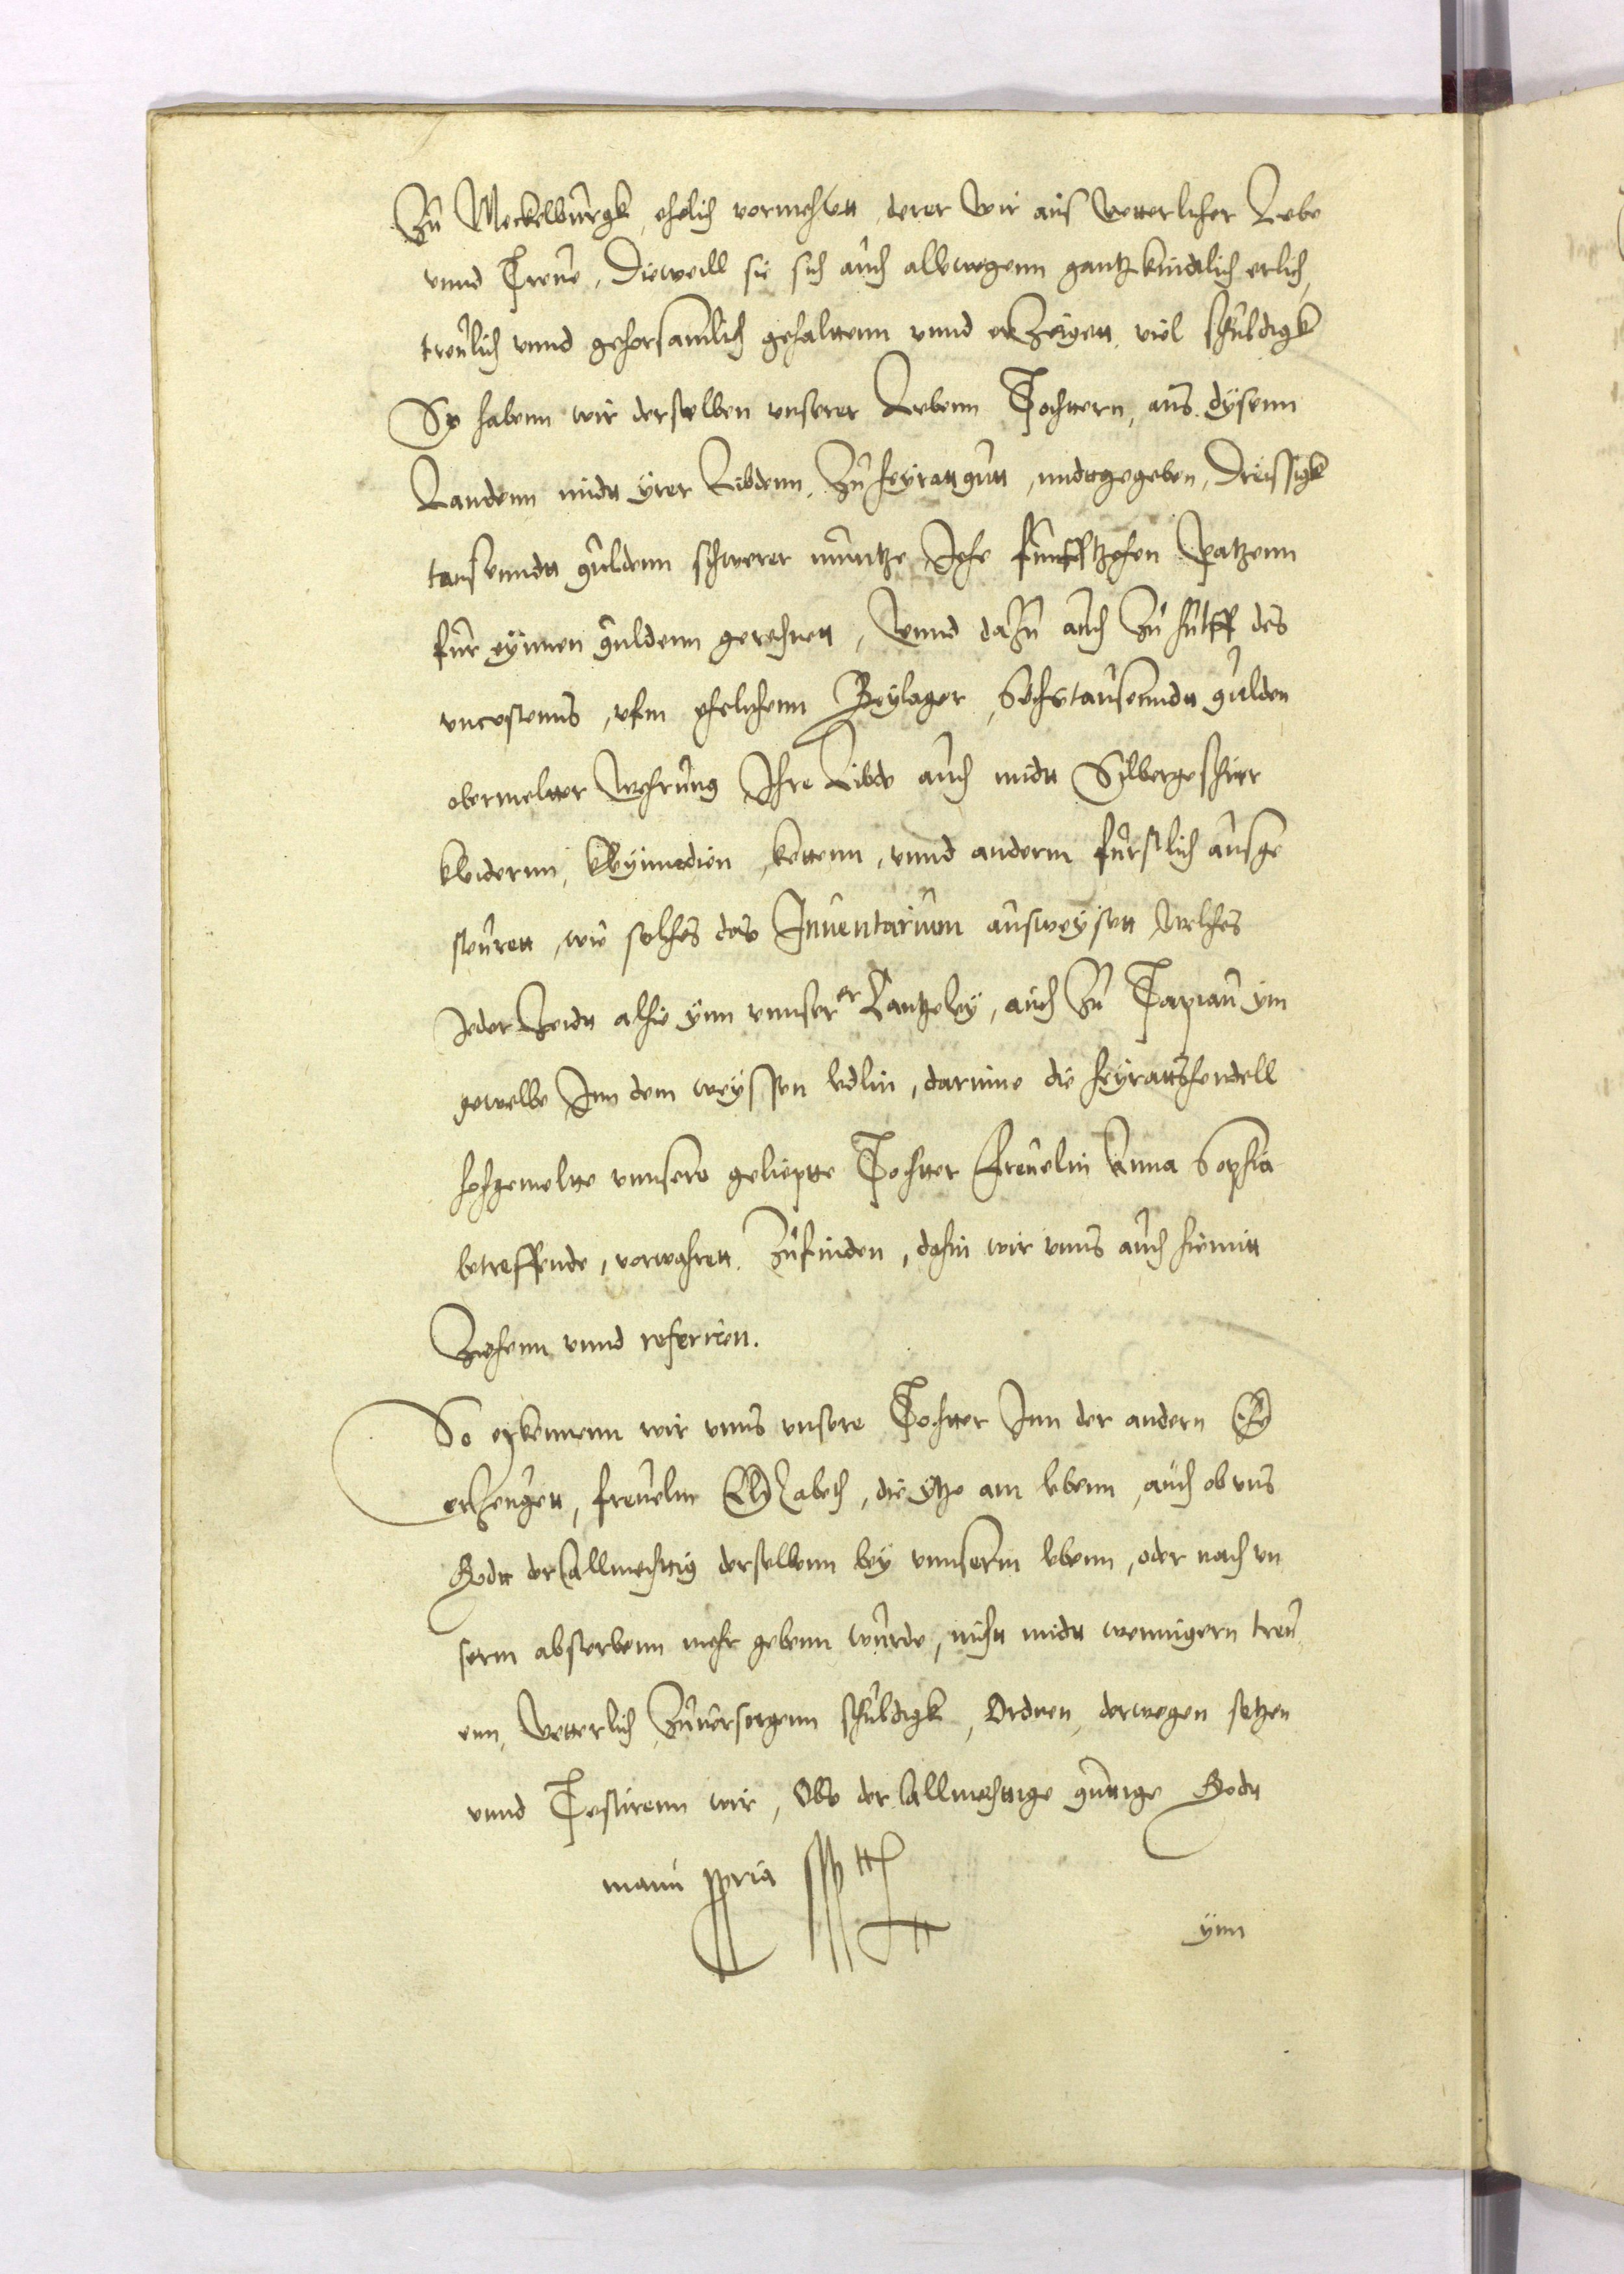 Zu Meckelburgk, ehelich vormehlett, derer wir aus vetterlicher Liebe
vnnd Treue, Dieweill sie sich auch allewegenn gantz kindtlich erlich,
treulich vnnd gehorsamlich gehalttenn vnnd erzeigett, viel schuldigk
So habenn wir derselben vnserer Liebenn Tochttern, aus dysenn
Landenn midtt yrer Liebdenn, zu heyratt gutt, midttgegeben, Dreissigk
tausenndtt guldenn schwerer muntze Jhe funfftzehen Patzenn
fur eynnen guldenn gerechnett, Vnnd dazu auch zu hulff des
vncostenns, vfm ehelichenn Beylager, Sechstausenndtt gulden
obermeltter wehrung Ihre Liebde auch midtt Silbergeschirr
kleidernn, kleynnodien, kettenn, vnnd anderm furstlich ausge
steurett, wie solches das Inuentarium ausweysett welches
Jeder Zeidtt alhie ynn vnnser er Cantzeley, auch zu Tapiau ym
gewelbe Inn dem weyssen ledlin, darinne die heyrattshendell
hochgemeltte vnnsere geliepte Tochtter Freuelin Anna Sophia
betreffende, vorwahrett zufinden, dahin wir vnns auch hiemitt
Ziehenn vnnd referiren.
So erkennenn wir vnns vnsere Tochtter Inn der andern Ehe
erzeugett, freuelin Elizabeth, die ytze am lebenn, auch ob vns
Godtt der Allmechttig derselbenn bey vnnserm lebenn, oder nach vn
serm absterbenn mehr gebenn wurde, nicht midtt wennigern treu
enn, Vetterlich zuuorsorgenn schuldigk, Ordnen, derwegen setzen
vnnd Testirenn wir, Obe der Allmechttige guttige Godtt
manu ppria sspt
ynn